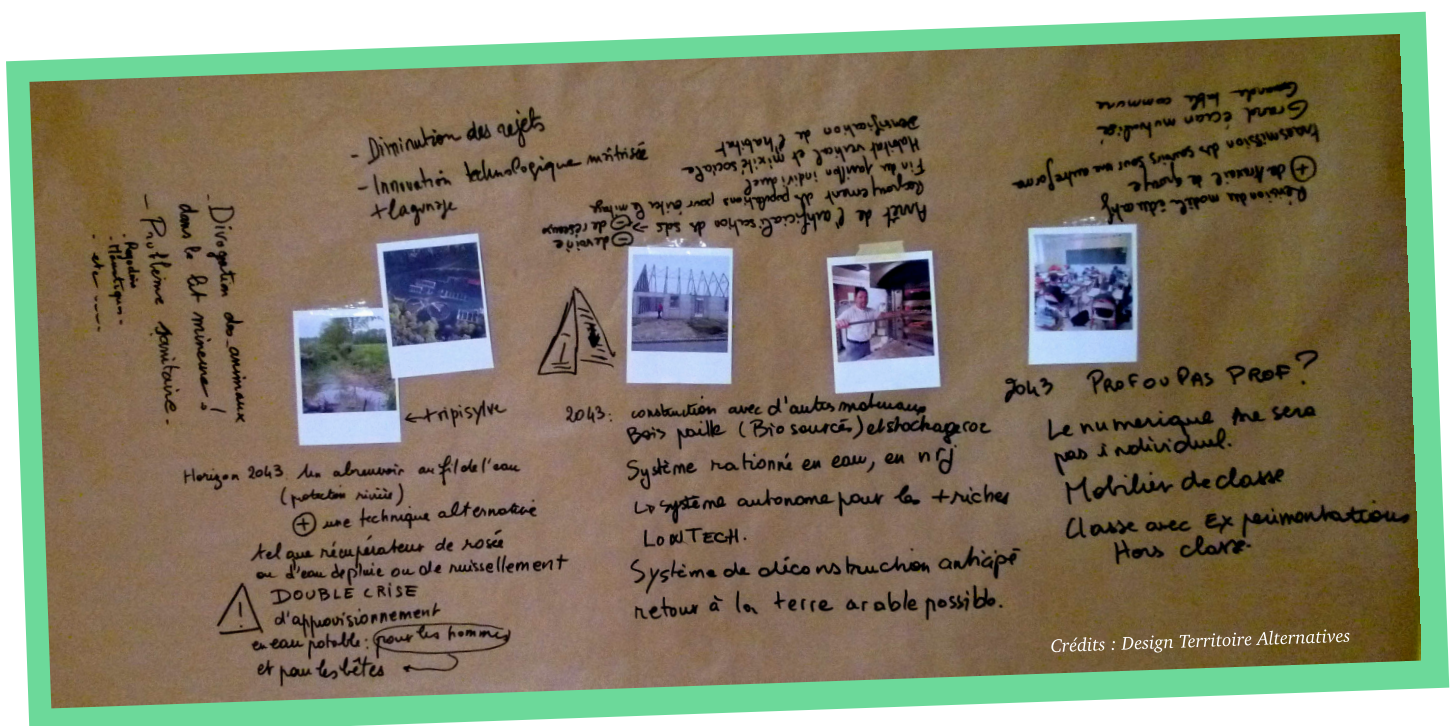 - Diminution des rejets
- Innovation technologique maîtrisée
+ lagunage
- Divagation des animaux
dans le lit mineur !
- Problème sanitaire -
- Ragondins
- etc
← + ripisylve
Horizon 2043 Un abreuvoir au fil de l'eau
(protection rivière)
⊕ une technique alternative
tel que récupérateur de rosée
ou d'eau de pluie ou de ruissellement
! DOUBLE CRISE
d'approvisionnement
en eau potable : pour les hommes
et pour les bêtes
Arrêt de l'artificialisation des sols → ⊖ de voirie
⊖ de réseaux
Regroupement des populations pour éviter le mitage
Fin du pavillon individuel
Habitat vertical et mixité sociale
Densification de l'habitat
2043 : construction avec d'autres matériaux
Bois paille (Bio sourcés) et stockage
Système rationné en eau, en nrj
↳ système autonome pour les + riches
LOWTECH.
Système de déconstruction anticipé
retour à la terre arable possible.
Révision du modèle éducatif
⊕ de travail de groupe
transmission des savoirs sous une autre forme
Grand écran mutualisé
Grande table commune
2043 PROF OU PAS PROF ?
Le numérique ne sera
pas individuel.
Mobilier de classe
Classe avec Expérimentations
Hors classe.
Crédits : Design Territoire Alternatives